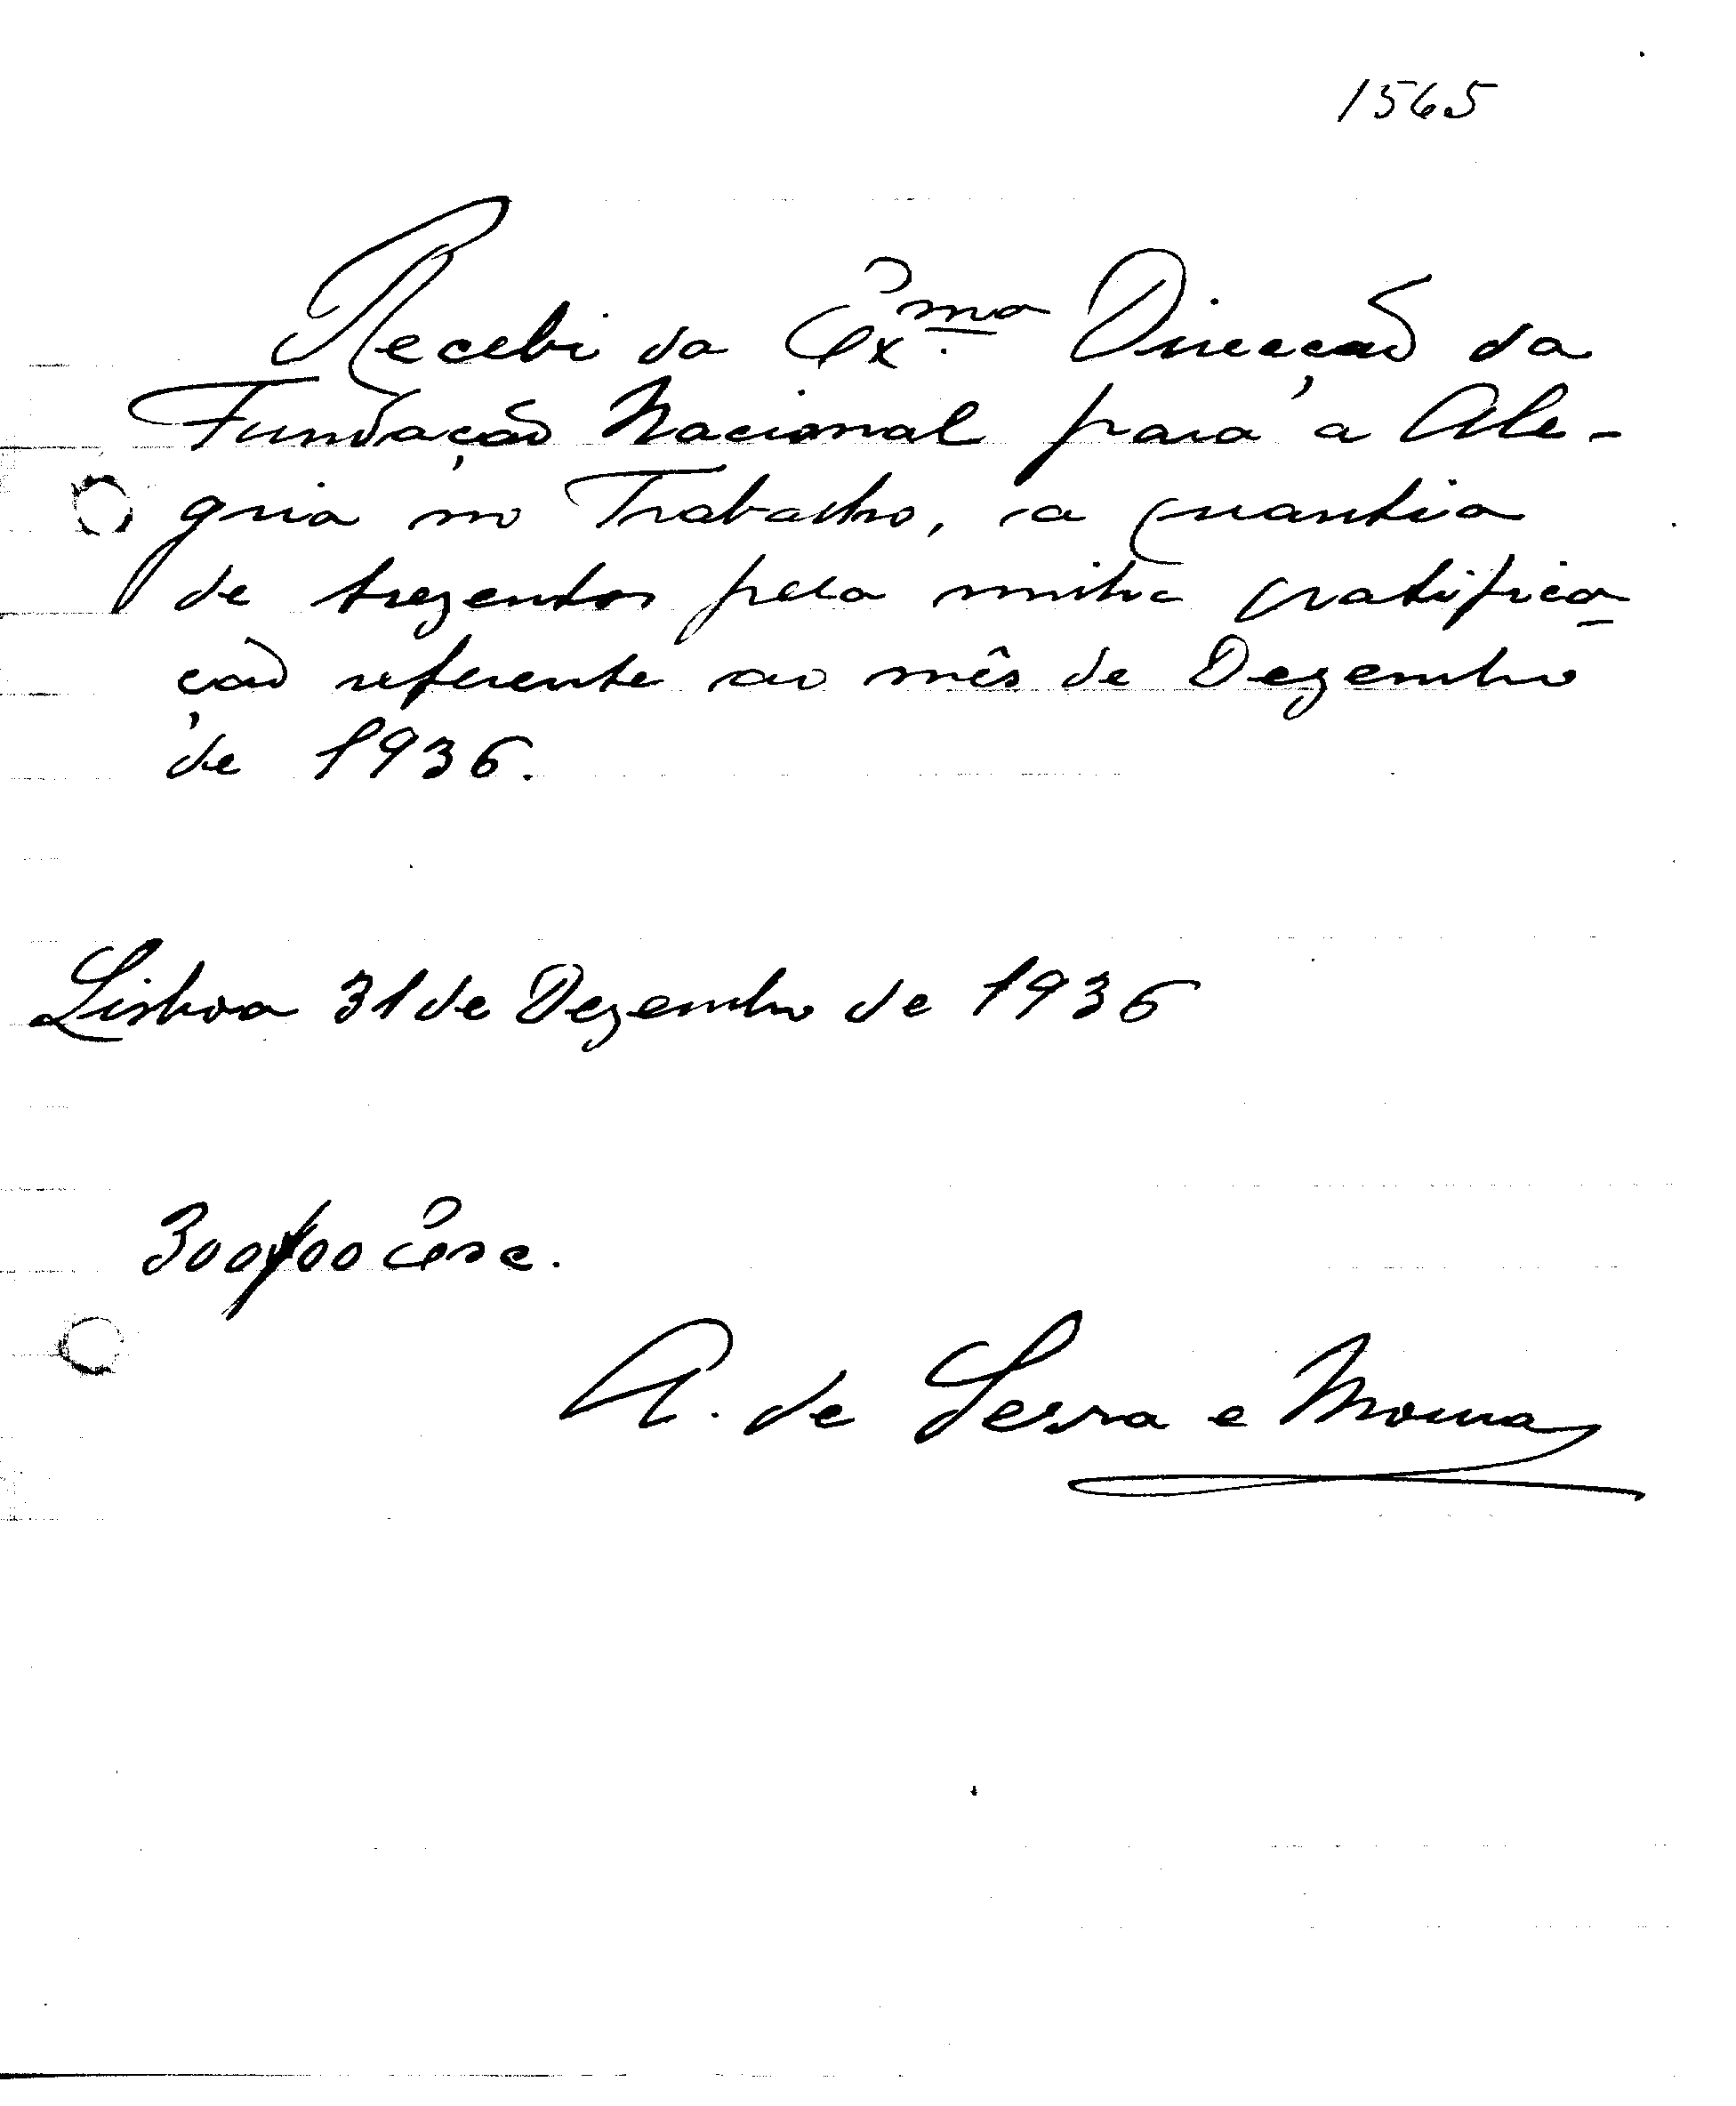 1565
Recebi da Ex.ma Direcção da
Fundação Nacional para a Ale-
gria no Trabalho, a quantia
de trezentos pela minha gratifica-
ção referente ao mês de Dezembro
de 1936.
Lisboa 31 de Dezembro de 1936
300$00 Esc.
A. de Serra e Moura